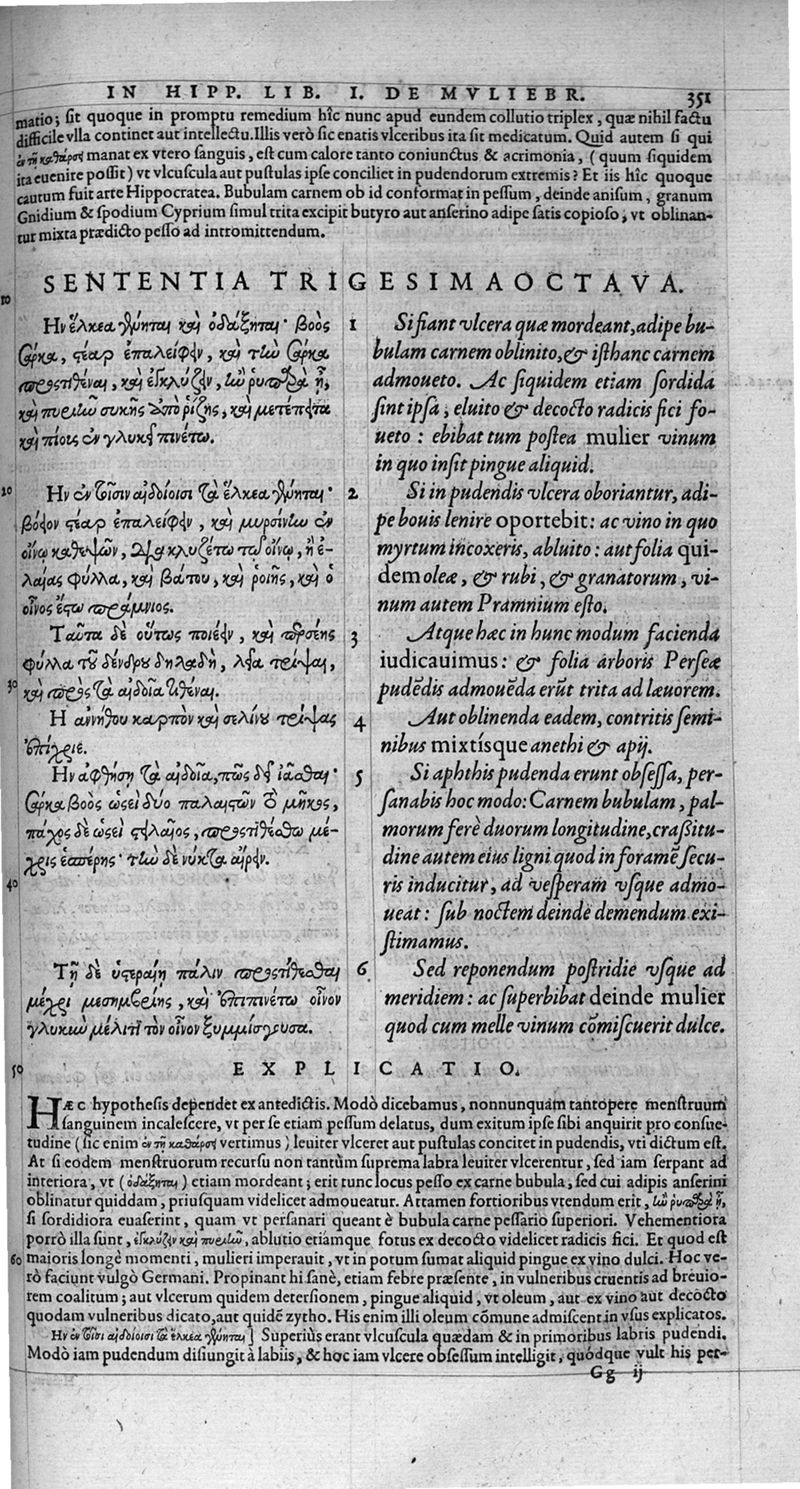 IN HIPP. LIB. I. DE MVLIEBR. 351
matio; ſit quoque in promptu remedium hîc nunc apud eundem collutio triplex, quæ nihil factu
difficile vlla continet aut intellectu. Illis verò ſic enatis vlceribus ita ſit medicatum. Quid autem ſi qui
ἐν τῇ καθάρσῃ manat ex vtero ſanguis, eſt cum calore tanto coniunctus & acrimonia, (quum ſiquidem
ita euenire poſſit) vt vlcuſcula aut puſtulas ipſe conciliet in pudendorum extremis? Et iis hîc quoque
cautum fuit arte Hippocratea. Bubulam carnem ob id conformat in peſſum, deinde aniſum, granum
Gnidium & ſpodium Cyprium ſimul trita excipit butyro aut anſerino adipe ſatis copioſo, vt oblinan-
tur mixta prædicto peſſo ad intromittendum.
SENTENTIA TRIGESIMAOCTAVA.
10
Ην ἕλκεα γένηται καὶ ὀδάξηται· βοὸς
σάρκα, στέαρ ἐπαλείφειν, καὶ τὴν σάρκα
προστιθέναι, καὶ ἐσκλύζειν, ἢν ῥυπαρὰ ᾖ,
καὶ πυριῆν συκῆς ἀπὸ ῥίζης, καὶ μετέπειτα
καὶ πῖος ἐν γλυκεῖ πινέτω.
1 Si fiant vlcera quæ mordeant, adipe bu-
bulam carnem oblinito, & iſthanc carnem
admoueto. Ac ſiquidem etiam ſordida
ſint ipſa, eluito & decocto radicis fici fo-
ueto: ebibat tum poſtea mulier vinum
in quo inſit pingue aliquid.
20
Ην ἐν τοῖσιν αἰδοίοισι τὰ ἕλκεα γένηται·
βόειον στέαρ ἐπαλείφειν, καὶ μυρσίνην ἐν
οἴνῳ καθεψῶν, διακλυζέτω τῷ οἴνῳ, ἢ ἐ-
λαίας φύλλα, καὶ βάτου, καὶ ῥοιῆς, καὶ ὁ
οἶνος ἔστω πράμνιος.
2 Si in pudendis vlcera oboriantur, adi-
pe bouis lenire oportebit: ac vino in quo
myrtum incoxeris, abluito: aut folia qui-
dem oleæ, & rubi, & granatorum, vi-
num autem Pramnium eſto.
Ταῦτα δὲ οὕτως ποιέειν, καὶ περσέης
φύλλα τοῦ δένδρου δηλαδὴ, λεῖα τρίψαι,
30 καὶ πρὸς τὰ αἰδοῖα τιθέναι.
3 Atque hæc in hunc modum facienda
iudicauimus: & folia arboris Perſeæ
pudēdis admouēda erūt trita ad læuorem.
Η ἀννήθου καρπὸν καὶ σελίνου τρίψας
ἐπίχριε.
4 Aut oblinenda eadem, contritis ſemi-
nibus mixtíſque anethi & apij.
Ην ἀφθήσῃ τὰ αἰδοῖα, πῶς δεῖ ἰᾶσθαι·
σάρκα βοὸς ὡσεὶ δύο παλαιστῶν τὸ μῆκος,
πάχος δὲ ὡσεὶ στειλαῖος, προστιθέσθω μέ-
χρις ἑσπέρης· τὴν δὲ νύκτα αἴρειν.
40
5 Si aphthis pudenda erunt obſeſſa, per-
ſanabis hoc modo: Carnem bubulam, pal-
morum ferè duorum longitudine, craßitu-
dine autem eius ligni quod in foramē ſecu-
ris inducitur, ad veſperam vſque admo-
ueat: ſub noctem deinde demendum exi-
ſtimamus.
Τῇ δὲ ὑστεραίῃ πάλιν προστίθεσθαι
μέχρι μεσημβρίης, καὶ ἐπιπινέτω οἶνον
γλυκὺν μέλιτι τὸν οἶνον ξυμμίσγουσα.
6 Sed reponendum poſtridie vſque ad
meridiem: ac ſuperbibat deinde mulier
quod cum melle vinum cōmiſcuerit dulce.
50 EXPLICATIO.
HÆC hypotheſis dependet ex antedictis. Modò dicebamus, nonnunquam tantopere menſtruum
ſanguinem incaleſcere, vt per ſe etiam peſſum delatus, dum exitum ipſe ſibi anquirit pro conſue-
tudine (ſic enim ἐν τῇ καθάρσῃ vertimus) leuiter vlceret aut puſtulas concitet in pudendis, vti dictum eſt.
At ſi eodem menſtruorum recurſu non tantùm ſuprema labra leuiter vlcerentur, ſed iam ſerpant ad
interiora, vt (ὀδάξηται) etiam mordeant; erit tunc locus peſſo ex carne bubula, ſed cui adipis anſerini
oblinatur quiddam, priuſquam videlicet admoueatur. Attamen fortioribus vtendum erit, ἢν ῥυπαρὰ ᾖ,
ſi ſordidiora euaſerint, quam vt perſanari queant è bubula carne peſſario ſuperiori. Vehementiora
porrò illa ſunt, ἐσκλύζειν καὶ πυριῆν, ablutio etiamque fotus ex decocto videlicet radicis fici. Et quod eſt
60 maioris longè momenti, mulieri imperauit, vt in potum ſumat aliquid pingue ex vino dulci. Hoc ve-
rò faciunt vulgò Germani. Propinant hi ſanè, etiam febre præſente, in vulneribus cruentis ad breuio-
rem coalitum; aut vlcerum quidem deterſionem, pingue aliquid, vt oleum, aut ex vino aut decocto
quodam vulneribus dicato, aut quidē zytho. His enim illi oleum cōmune admiſcent in vſus explicatos.
Ην ἐν τοῖσι αἰδοίοισι τὰ ἕλκεα γένηται] Superiùs erant vlcuſcula quædam & in primoribus labris pudendi.
Modò iam pudendum diſiungit à labiis, & hoc iam vlcere obſeſſum intelligit, quódque vult his per-
Gg ij